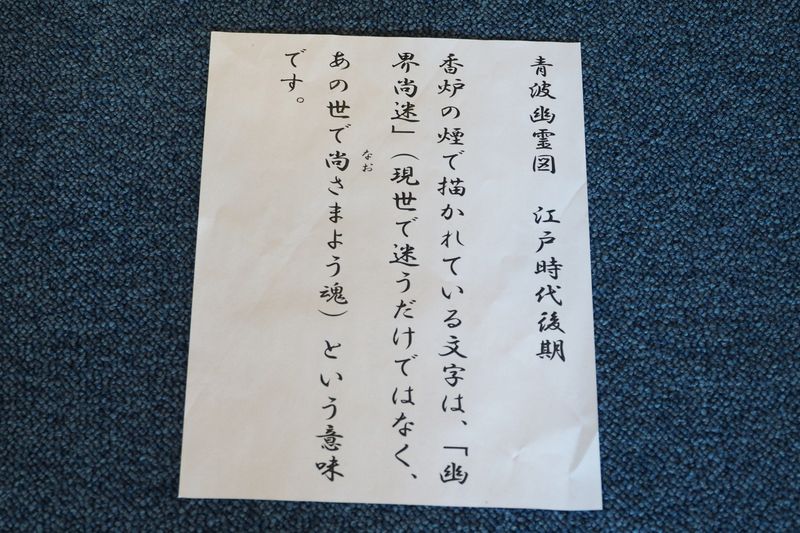 青波幽霊図　江戸時代後期
香炉の煙で描かれている文字は、「幽
界尚迷」（現世で迷うだけではなく、
あの世で尚さまよう魂）という意味
なお
です。